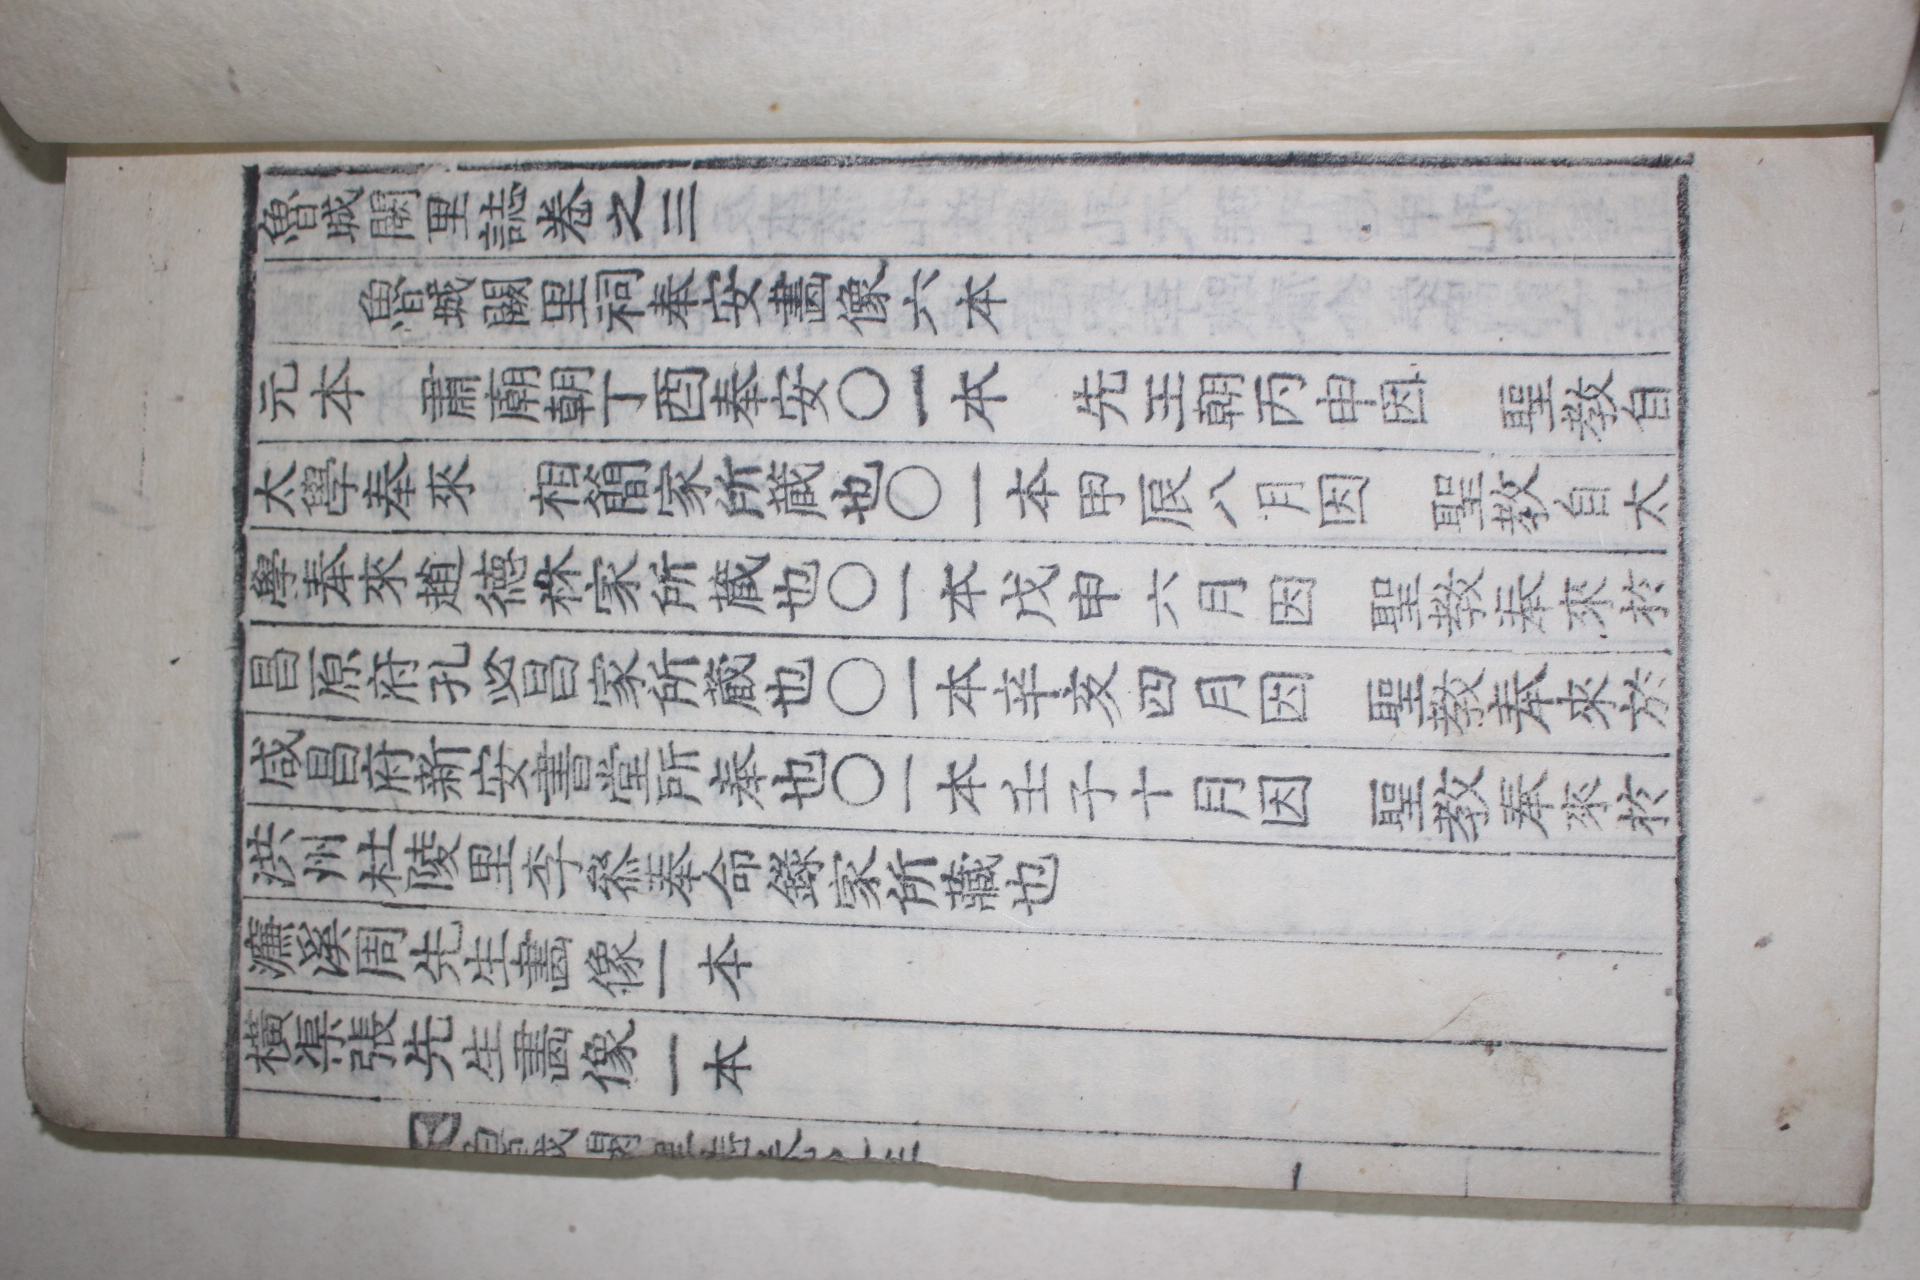 魯城闕里誌卷之三
魯城闕里祠奉安畵像六本
元本 肅廟朝丁酉奉安〇一本 先王朝丙申因 聖教自
太學奉來 相簡家所蔵也〇一本甲辰八月因 聖教自太
學奉來趙德秝家所蔵也〇一本戊申六月因 聖教奉來於
昌原府孔必昌家所蔵也〇一本辛亥四月因 聖教奉來於
咸昌府新安書堂所奉也〇一本壬子十月因 聖教奉來於
洪州杜陵里李叅奉命錄家所藏也
濂溪周先生畵像一本
橫渠張先生畵像一本
魯城闕里誌卷之三